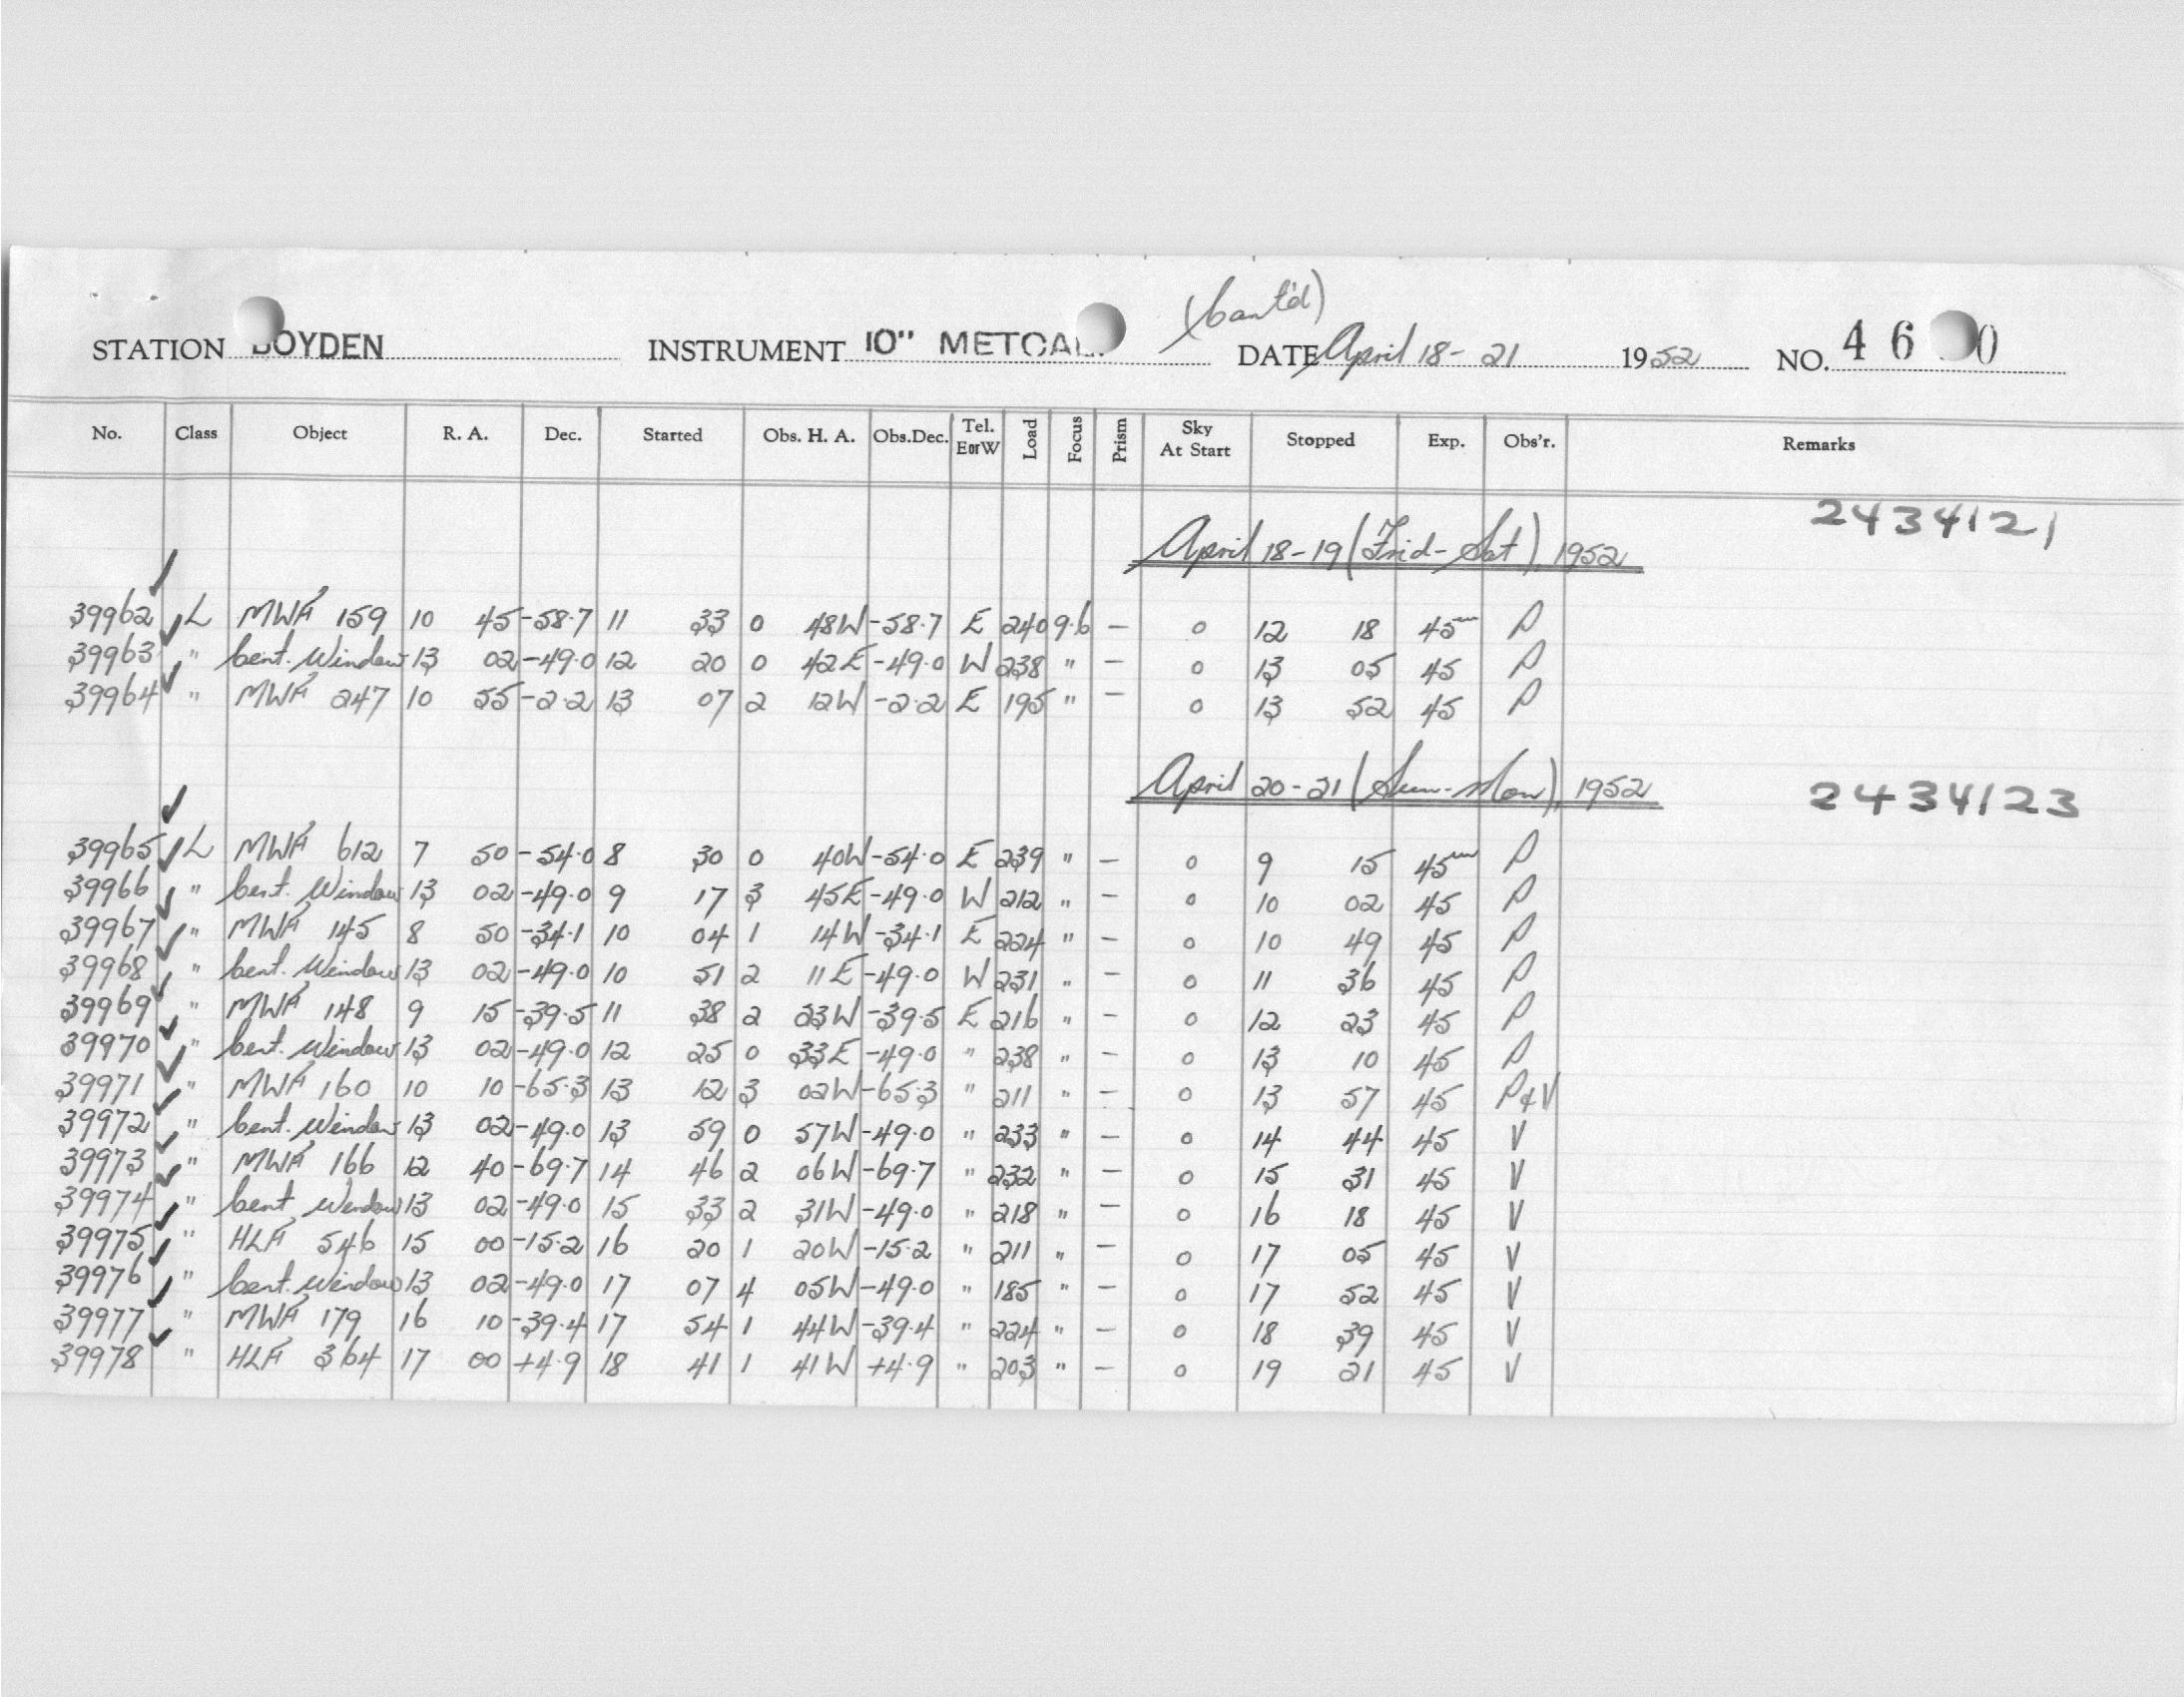 (Cont'd)
STATION BOYDEN INSTRUMENT 10" METCALF DATE April 18-21 1952 NO. 46 0
No. Class Object R. A. Dec. Started Obs. H. A. Obs.Dec. Tel. EorW Load Focus Prism Sky At Start Stopped Exp. Obs'r. Remarks
2434121
April 18-19 (Frid-Sat), 1952
39962 L MWF 159 10 45 -58.7 11 33 0 48W -58.7 E 240 9.6 — 0 12 18 45m P
39963 " Cent. Window 13 02 -49.0 12 20 0 42E -49.0 W 238 " — 0 13 05 45 P
39964 " MWF 247 10 55 -2.2 13 07 2 12W -2.2 E 195 " — 0 13 52 45 P
April 20-21 (Sun-Mon), 1952 2434123
39965 L MWF 612 7 50 -54.0 8 30 0 40W -54.0 E 239 " — 0 9 15 45m P
39966 " Cent. Window 13 02 -49.0 9 17 3 45E -49.0 W 212 " — 0 10 02 45 P
39967 " MWF 145 8 50 -34.1 10 04 1 14W -34.1 E 224 " — 0 10 49 45 P
39968 " Cent. Window 13 02 -49.0 10 51 2 11E -49.0 W 231 " — 0 11 36 45 P
39969 " MWF 148 9 15 -39.5 11 38 2 23W -39.5 E 216 " — 0 12 23 45 P
39970 " Cent. Window 13 02 -49.0 12 25 0 33E -49.0 " 238 " — 0 13 10 45 P
39971 " MWF 160 10 10 -65.3 13 12 3 02W -65.3 " 211 " — 0 13 57 45 P&V
39972 " Cent. Window 13 02 -49.0 13 59 0 57W -49.0 " 233 " — 0 14 44 45 V
39973 " MWF 166 12 40 -69.7 14 46 2 06W -69.7 " 232 " — 0 15 31 45 V
39974 " Cent Window 13 02 -49.0 15 33 2 31W -49.0 " 218 " 0 16 18 45 V
39975 " HLF 546 15 00 -15.2 16 20 1 20W -15.2 " 211 " — 0 17 05 45 V
39976 " Cent. Window 13 02 -49.0 17 07 4 05W -49.0 " 185 " — 0 17 52 45 V
39977 " MWF 179 16 10 -39.4 17 54 1 44W -39.4 " 224 " — 0 18 39 45 V
39978 " HLF 364 17 00 +4.9 18 41 1 41W +4.9 " 203 " — 0 19 21 45 V